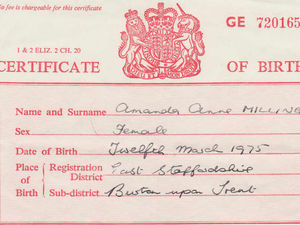 No fee is chargeable for this certificate
GE 720165
1 & 2 ELIZ. 2 CH. 20
CERTIFICATE OF BIRTH
Name and Surname Amanda Anne MILLING
Sex Female
Date of Birth Twelfth March 1975
Place of Birth
Registration District East Staffordshire
Sub-district Burton upon Trent